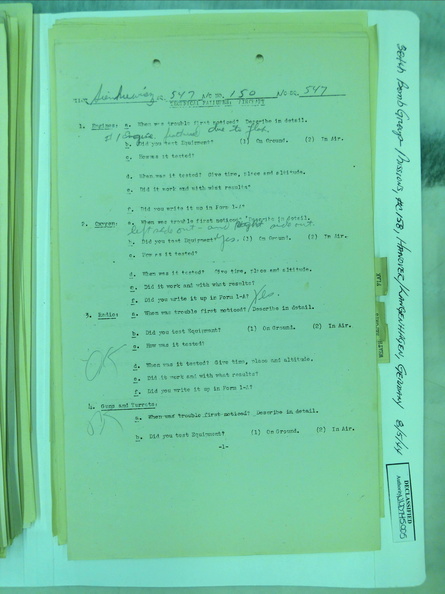 547 NO. 150 No. 547
TECHNICAL FAILURES, (CONT'D)
1. Engines: a. When was trouble first noticed? Describe in detail.
#1 Engine feathered due to flak
b. Did you test Equipment? (1) On Ground. (2) In Air.
c. How was it tested?
d. When was it tested? Give time, place and altitude.
e. Did it work and with what results?
f. Did you write it up in Form 1-A?
2. Oxygen: a. When was trouble first noticed? Describe in detail.
left side out - and right side out.
b. Did you test Equipment? Yes. (1) On Ground. (2) In Air.
c. How was it tested?
d. When was it tested? Give time, place and altitude.
e. Did it work and with what results?
f. Did you write it up in Form 1-A? Yes.
3. Radio: a. When was trouble first noticed? Describe in detail.
b. Did you test Equipment? (1) On Ground. (2) In Air.
OK
c. How was it tested?
d. When was it tested? Give time, place and altitude.
e. Did it work and with what results?
f. Did you write it up in Form 1-A?
4. Guns and Turrets:
OK
a. When was trouble first noticed? Describe in detail.
b. Did you test Equipment? (1) On Ground. (2) In Air.
-1-
384th Bomb Group - Missions, 158, Hanover/Langenhagen, Germany 8/5/44
DECLASSIFIED
Authority NND 745005